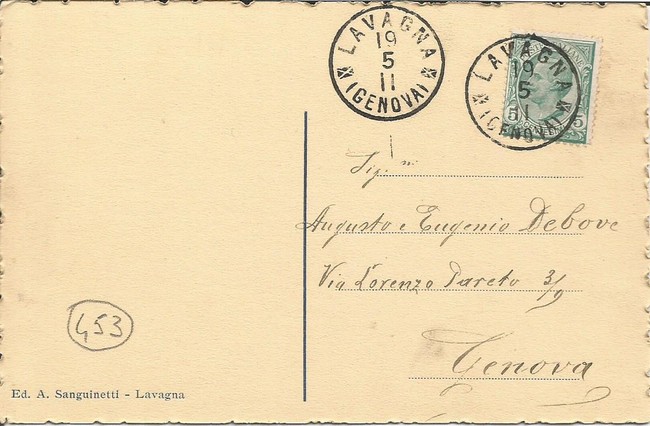 LAVAGNA
19
5
11
(GENOVA)
LAVAGNA
19
5
1
(GENOVA)
5 5
Sig.ni
Augusto e Eugenio Debove
Via Lorenzo Pareto 3/9
Genova
453
Ed. A. Sanguinetti - Lavagna